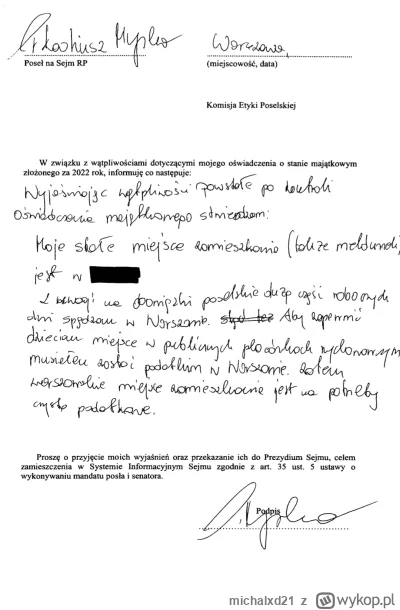 Arkadiusz Myrcha Warszawa,
Poseł na Sejm RP (miejscowość, data)
Komisja Etyki Poselskiej
W związku z wątpliwościami dotyczącymi mojego oświadczenia o stanie majątkowym
złożonego za 2022 rok, informuję co następuje:
Wyjaśniając wątpliwości powstałe po kontroli
Oświadczenia majątkowego stwierdzam:
Moje stałe miejsce zamieszkania (także meldunek)
jest w
Z uwagi na obowiązki poselskie dużą część roboczych
dni spędzam w Warszawie. stąd też Aby zapewnić
dzieciom miejsce w publicznych placówkach wychowawczych
musiałem zostać podatnikiem w Warszawie. Zatem
warszawskie miejsce zamieszkania jest na potrzeby
czysto podatkowe.
Proszę o przyjęcie moich wyjaśnień oraz przekazanie ich do Prezydium Sejmu, celem
zamieszczenia w Systemie Informacyjnym Sejmu zgodnie z art. 35 ust. 5 ustawy o
wykonywaniu mandatu posła i senatora.
Podpis
michalxd21 z wykop.pl